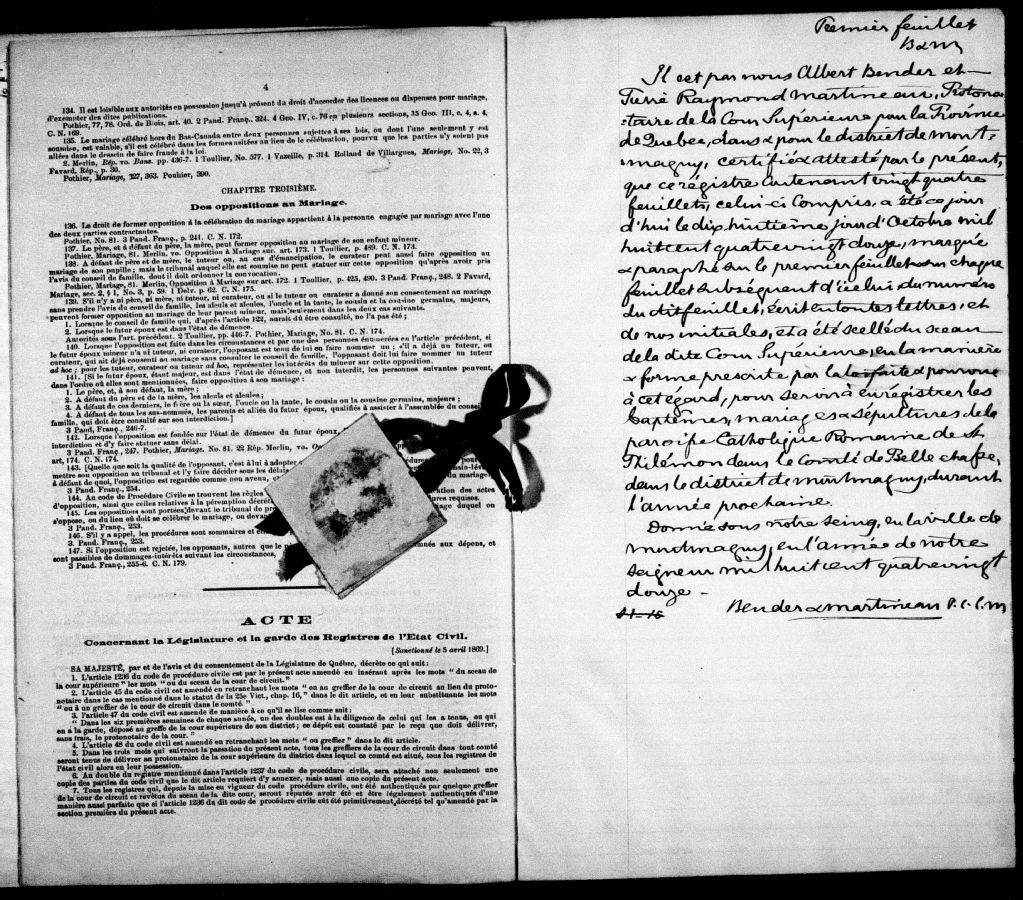 4
134. Il est loisible aux autorités en possession jusqu'à présent du droit d'accorder des licences ou dispenses pour mariage,
d'exempter des dites publications.
Pothier, 77, 78. Ord. de Blois, art. 40. 2 Pand. Franç., 324. 4 Geo. IV, c. 76 en plusieurs sections, 35 Geo. III, c. 4, s. 4,
C. N. 169.
135. Le mariage célébré hors du Bas-Canada entre deux personnes sujettes à ses lois, ou dont l'une seulement y est
soumise, est valable, s'il est célébré dans les formes usitées au lieu de la célébration, pourvu que les parties n'y soient pas
allées dans le dessein de faire fraude à la loi.
2. Merlin, Rép. vo. Bans. pp. 436-7. 1 Toullier, No. 577. 1 Vazeille, p. 314. Rolland de Villargues, Mariage, No. 22, 3
Favard, Rép., p. 30.
Pothier, Mariage, 327, 363. Pouhier, 390.
CHAPITRE TROISIÈME.
Des oppositions au Mariage.
136. Le droit de former opposition à la célébration du mariage appartient à la personne engagée par mariage avec l'une
des deux parties contractantes.
Pothier, No. 81. 3 Pand. Franç., p. 241. C. N. 172.
137. Le père, et à défaut du père, la mère, peut former opposition au mariage de son enfant mineur.
Pothier, Mariage, 81. Merlin. vo. Opposition à Mariage sur art. 173. 1 Toullier, p. 489. C. N. 173.
138. A défaut de père et de mère, le tuteur ou, au cas d'émancipation, le curateur peut aussi faire opposition au
mariage de son pupille; mais le tribunal auquel elle est soumise ne peut statuer sur cette opposition qu'après avoir pris
l'avis du conseil de famille, dont il doit ordonner la convocation.
Pothier, Mariage, 81. Merlin, Opposition à Mariage sur art. 172. 1 Toullier, p. 425, 490. 3 Pand. Franç., 248. 2 Favard,
Mariage, sec. 2, § 1, No. 3, p. 59. 1 Delv. p. 62. C. N. 175.
139. S'il n'y a ni père, ni mère, ni tuteur, ni curateur, ou si le tuteur ou curateur a donné son consentement au mariage
sans prendre l'avis du conseil de famille, les aïeuls et aïeules, l'oncle et la tante, le cousin et la cousine germains, majeurs,
peuvent former opposition au mariage de leur parent mineur, mais seulement dans les deux cas suivants.
1. Lorsque le conseil de famille qui, d'après l'article 122, aurait dû être consulté, ne l'a pas été;
2. Lorsque le futur époux est dans l'état de démence.
Autorités sous l'art. précédent. 2 Toullier, pp. 446-7. Pothier, Mariage, No. 81. C. N. 174.
140. Lorsque l'opposition est faite dans ces circonstances et par une des personnes énumérées en l'article précédent, si
le futur époux mineur n'a ni tuteur, ni curateur, l'opposant est tenu de lui en faire nommer un; s'il a déjà un tuteur, ou
curateur, qui ait déjà consenti au mariage sans consulter le conseil de famille, l'opposant doit lui faire nommer un tuteur
ad hoc; pour les tuteur, curateur ou tuteur ad hoc, représenter les intérêts du mineur sur cette opposition.
141. [Si le futur époux, étant majeur, est dans l'état de démence, et non interdit, les personnes suivantes peuvent,
dans l'ordre où elles sont mentionnées, faire opposition à son mariage:
1. Le père et, à son défaut, la mère;
2. A défaut du père et de la mère, les aïeuls et aïeules;
3. A défaut de ces derniers, le frère ou la sœur, l'oncle ou la tante, le cousin ou la cousine germains, majeurs;
4. A défaut de tous les sus-nommés, les parents et alliés du futur époux, qualifiés à assister à l'assemblée du conseil
famille, qui doit être consulté sur son interdiction.]
3 Pand. Franç., 246-7.
142. Lorsque l'opposition est fondée sur l'état de démence du futur époux,
interdiction et d'y faire statuer sans délai.
3 Pand. Franç., 247. Pothier, Mariage, No. 81. 22 Rép. Merlin, vo.
art. 174. C. N. 174.
143. [Quelle que soit la qualité de l'opposant, c'est à lui à adopter
mettre son opposition au tribunal et l'y faire décider sous les délais
à défaut de quoi, l'opposition est regardée comme non avenue,
du mariage.
3 Pand. Franç., 254.
144. Au code de Procédure Civile se trouvent les règles
ration des actes
d'opposition, ainsi que celles relatives à la péremption décrét
ures requises.
145. Les oppositions sont portées devant le tribunal du
mariage duquel on
s'oppose, ou du lieu où doit se célébrer le mariage, ou devan
3 Pand. Franç., 253.
146. S'il y a appel, les procédures sont sommaires et
3. Pand. Franç., 253.
147. Si l'opposition est rejetée, les opposants, autres que le
mnés aux dépens, et
sont passibles de dommages-intérêts suivant les circonstances,
3 Pand. Franç., 255-6. C. N. 179.
ACTE
Concernant la Législature et la garde des Registres de l'Etat Civil.
[Sanctionné le 5 avril 1869.]
SA MAJESTÉ, par et de l'avis et du consentement de la Législature de Québec, décrète ce qui suit:
1. L'article 1236 du code de procédure civile est par le présent acte amendé en insérant après les mots "du sceau de
la cour supérieure" les mots "ou du sceau de la cour de circuit."
2. L'article 45 du code civil est amendé en retranchant les mots "ou au greffier de la cour de circuit au lieu du proto-
notaire dans le cas mentionné dans le statut de la 25e Vict., chap. 16," dans le dit article, et en leur substituants les mots
"ou à un greffier de la cour de circuit dans le comté."
3. l'article 47 du code civil est amendé de manière à ce qu'il se lise comme suit:
"Dans les six premières semaines de chaque année, un des doubles est à la diligence de celui qui les a tenus, ou qui
en a la garde, déposé au greffe de la cour supérieure de son district; ce dépôt est constaté par le reçu que doit délivrer,
sans frais, le protonotaire de la cour."
4. L'article 48 du code civil est amendé en retranchant les mots "ou greffier" dans le dit article.
5. Dans les trois mois qui suivront la passation du présent acte, tous les greffiers de la cour de circuit dans tout comté
seront tenus de délivrer au protonotaire de la cour supérieure du district dans lequel ce comté est situé, tous les registres de
l'état civil alors en leur possession.
6. Au double du registre mentionné dans l'article 1237 du code de procédure civile, sera attaché non seulement une
copie des parties du code civil que le dit article requiert d'y annexer, mais aussi une copie du présent acte.
7. Tous les registres qui, depuis la mise en vigueur du code procédure civile, ont été authentiqués par quelque greffier
de la cour de circuit et revêtus du sceau de la dite cour, seront réputés avoir été et être légalement authentiqués d'une
manière aussi parfaite que si l'article 1236 du dit code de procédure civile eût été primitivement décrété tel qu'amendé par la
section première du présent acte.
Premier feuillet
B&M
Il est par nous Albert Bender et
Pierre Raymond Martineau, Protono-
-taire de la Cour Supérieure pour la Province
de Québec, dans & pour le district de Mont-
magny, certifié & attesté par le présent,
que ce régistre contenant vingt quatre
feuillets, celui-ci compris, a été ce jour
d'hui le dix huitième jour d'Octobre mil
huit cent quatrevingt douze, marqué
& paraphé sur le premier feuillet & sur chaque
feuillet subséquent d'icelui, du numéro
du dit feuillet, écrit en toutes lettres, et
de nos initiales, et a été scellé du sceau
de la dite Cour Supérieure, en la manière
& forme prescrite par la loi faite & pourvue
à cet égard, pour servir à enrégistrer les
baptêmes, mariages & sépultures de la
paroisse Catholique Romaine de St
Philémon dans le Comté de Bellechasse,
dans le district de Montmagny, durant
l'année prochaine.
Donnée sous notre seing, en la ville de
Montmagny, en l'année de notre
Seigneur mil huit cent quatrevingt
douze -
Bender & Martineau P. C. S. M